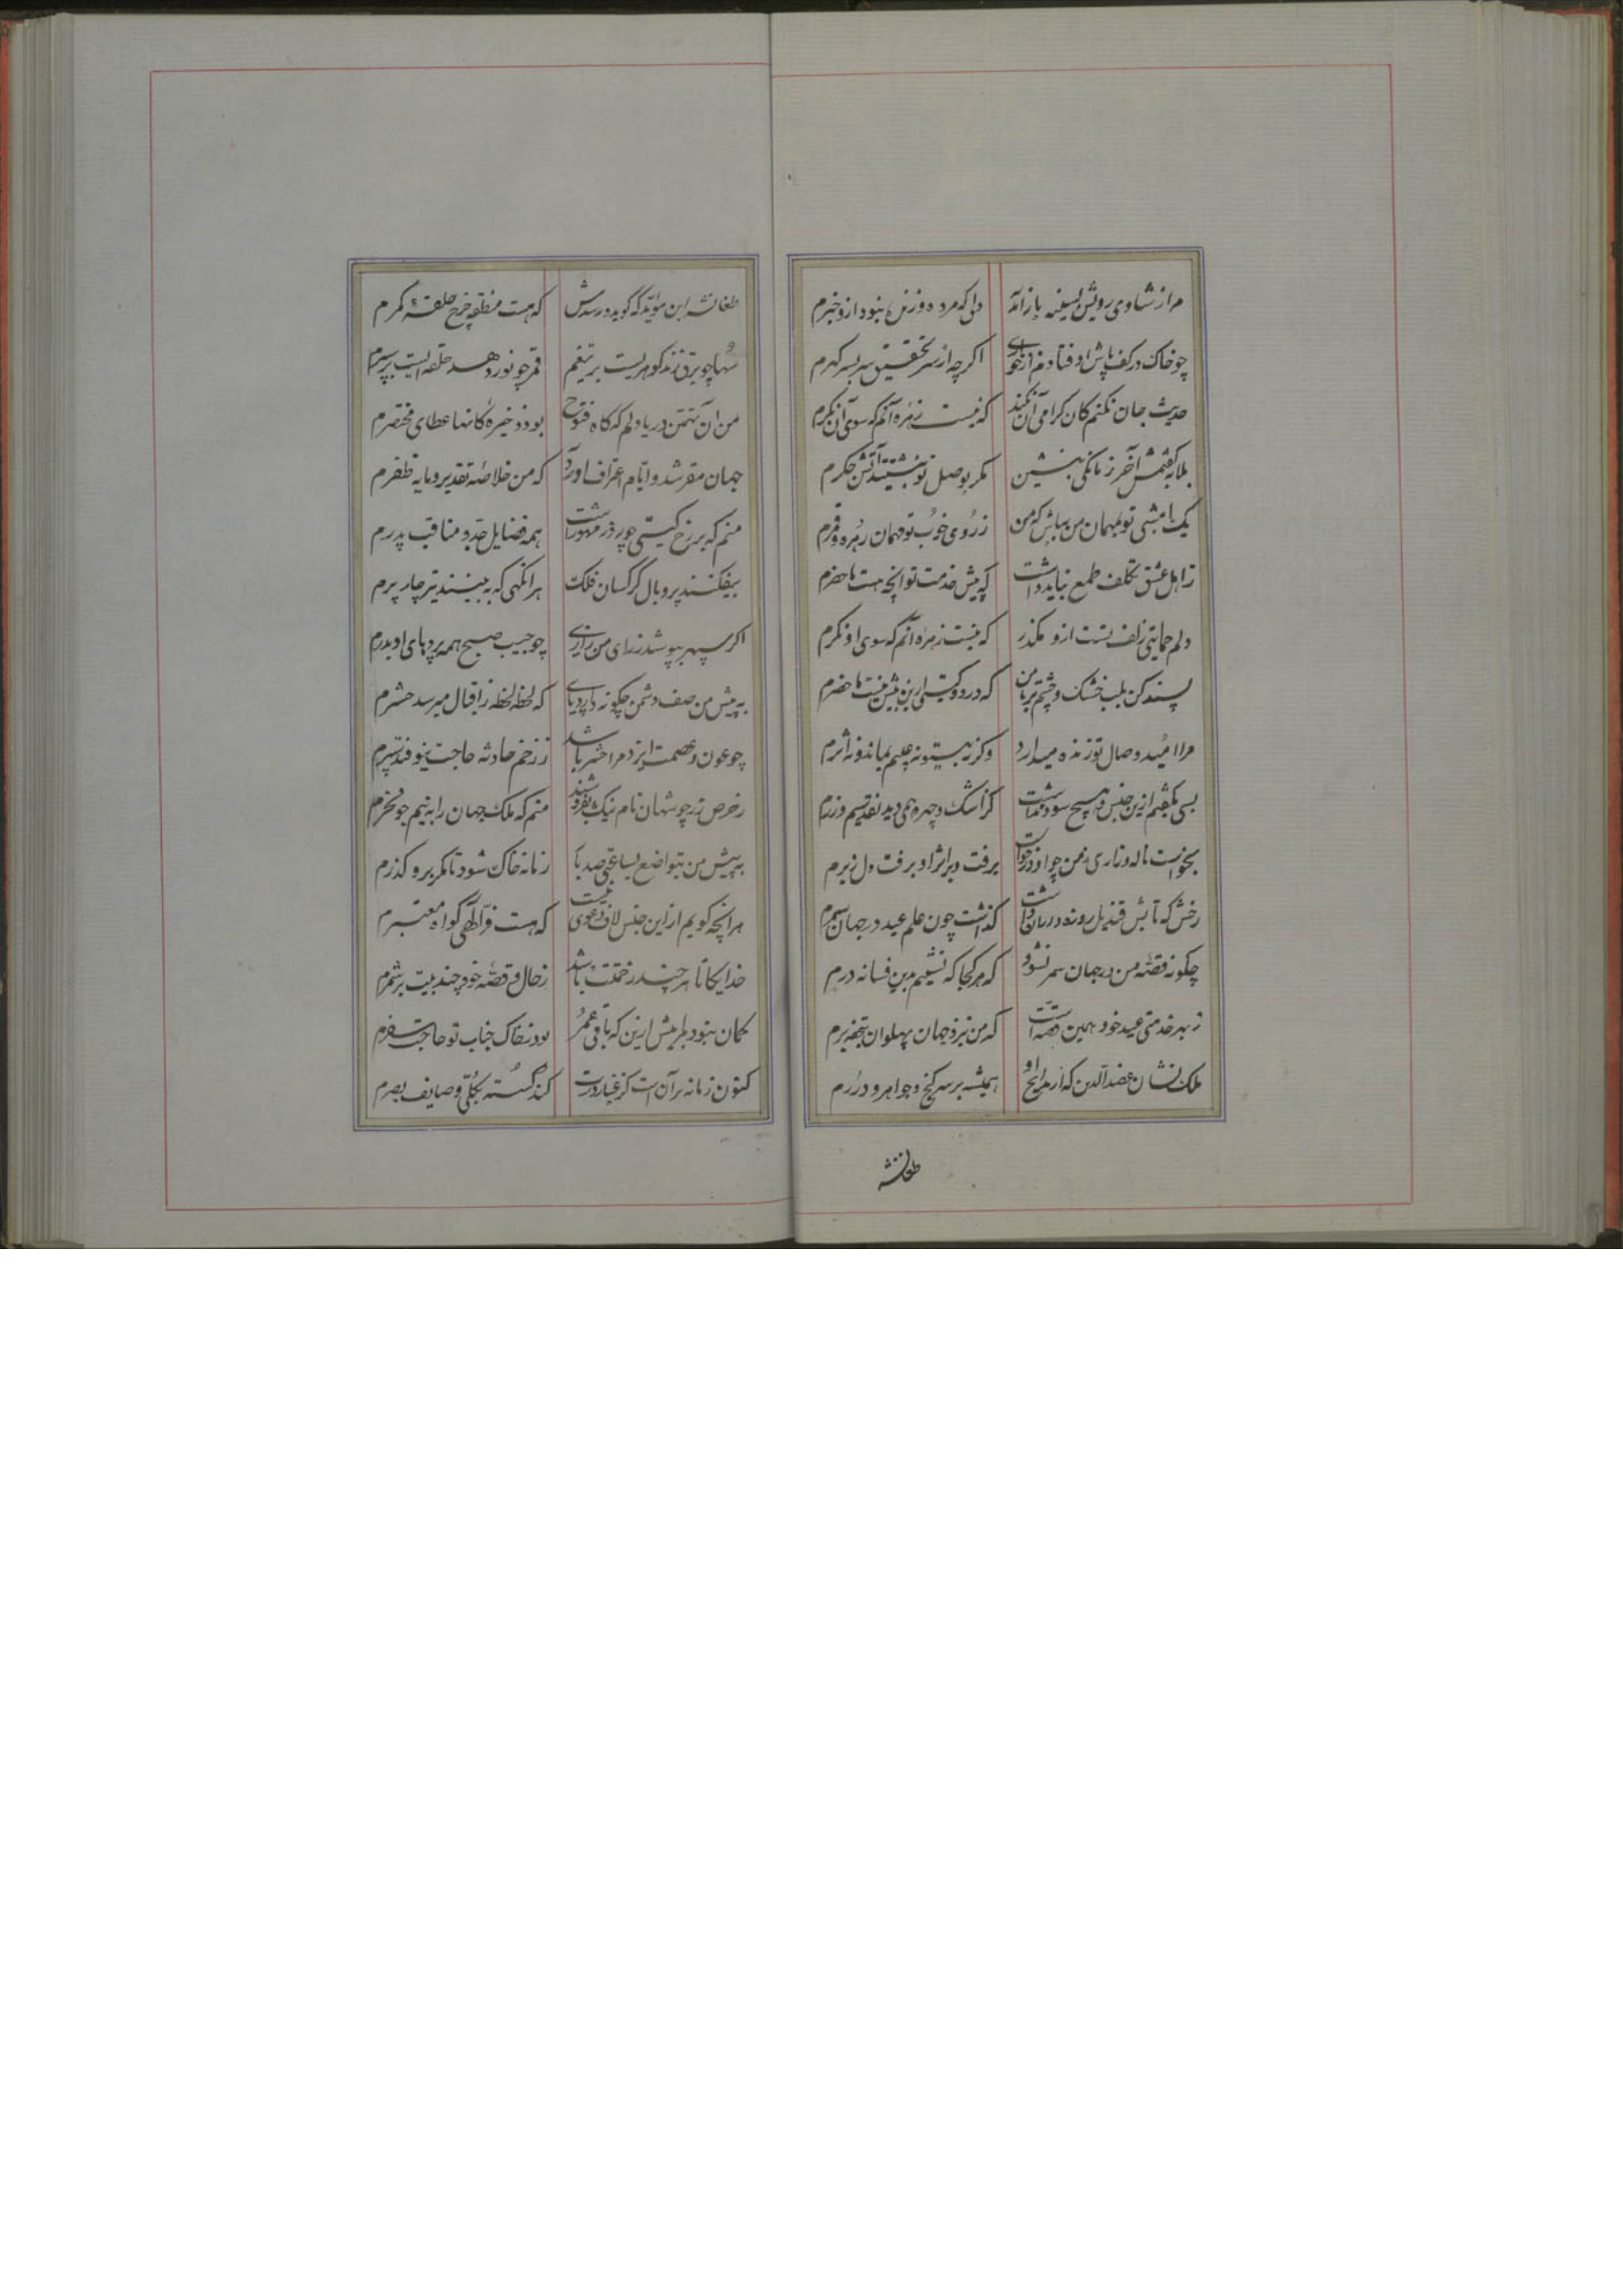 مرا ز شادی رویش بسینه باز آمد دلی که مرده و زنده نبود ازو خبرم
چو خاک در کف پایش او فتادم از خواری اگرچه از سر تحقیق سر بسر گهرم
حدیث جان نکنم کان گرامی آن نکند که نیست زهره آنم که سوی آن نگرم
بلابه گفتمش آخر زمانکی بنشین مگر بوصل تو بنشیند آتش جگرم
یک امشبی تو مهمان من بباش که من ز روی خوب تو مهمان زهره و قمرم
ز اهل عشق تکلف طمع نباید داشت که پیش خدمت تو آنچه هست ماحضرم
دلم حمایتی زلف تست ازو مگذر که نیست زهره آنم که سوی او نگرم
پسند کن بلب خشک و چشم تر با من که در دو گیتی ازین بیش نیست ماحضرم
مرا امید وصال تو زنده میدارد وگرنه بیتو نه عینم بماند و نه اثرم
بسی بگفتم ازین جنس و هیچ سود نداشت کز اشک و چهره همی دید نقد سیم و زرم
نخواست ناله و زاری ز من چو او درخواست برفت و بر اثر او برفت دل ز برم
رخش که تابش قندیل روزه در بان داشت گذشت چون علم عید در جهان سمرم
چگونه قصه من در جهان سمر نشود که هر کجا که نشینم بدین فسانه درم
ز بهر خدمتی عید خود همین قصه است که من بنزد جهان پهلوان بتحفه برم
ملک نشان عضدالدین که از مدایح او همیشه بر سر گنج و جواهر و دررم
طغانشه
طغانشه ابن مؤید که گوید و رسدش که هست منطقه چرخ حلقه کمرم
سها چو برق زند گوهریست بر تیغم قمر چو نور دهد حلقه ایست بر سپرم
من آن تهمتن دریا دلم که گاه فتوح بود ذخیره کانها عطای مختصرم
جهان مقر شد و ایام اعتراف آورد که من خلاصه تقدیر و مایه ظفرم
منم که بر رخ گیتی چو روز مشهور است همه فضایل جد و مناقب پدرم
بیفکنند پر و بال کرکسان فلک هر آنگهی که ببینند تیر چار پرم
اگر سپهر بپوشد ز رای من رازی چو جیب صبح همه پردهای او بدرم
به پیش من صف دشمن چگونه دارد پای که لحظه لحظه ز اقبال میرسد حشرم
چو عون و عصمت ایزد مرا حشر باشد ز زخم حادثه حاجت نیوفتد بسپرم
ز حرص زر چو شهان نام نیک بفروشند منم که ملک جهان را به نیم جو نخرم
به پیش من بتواضع بساعتی صد بار زمانه خاک شود تا مگر برو گذرم
هر آنچه گویم ازین جنس لاف و دعوی نیست که هست فر الهی گواه معتبرم
خدایگانا هر چند زحمتت باشد ز حال و قصه خود چند بیت بر شمرم
گمان نبود مرا پیش ازین که باقی عمر بود ز خاک جناب تو حاجت سفرم
کنون زمانه بر آن است کز غبار درت کند گسسته بکلی وصایف بصرم